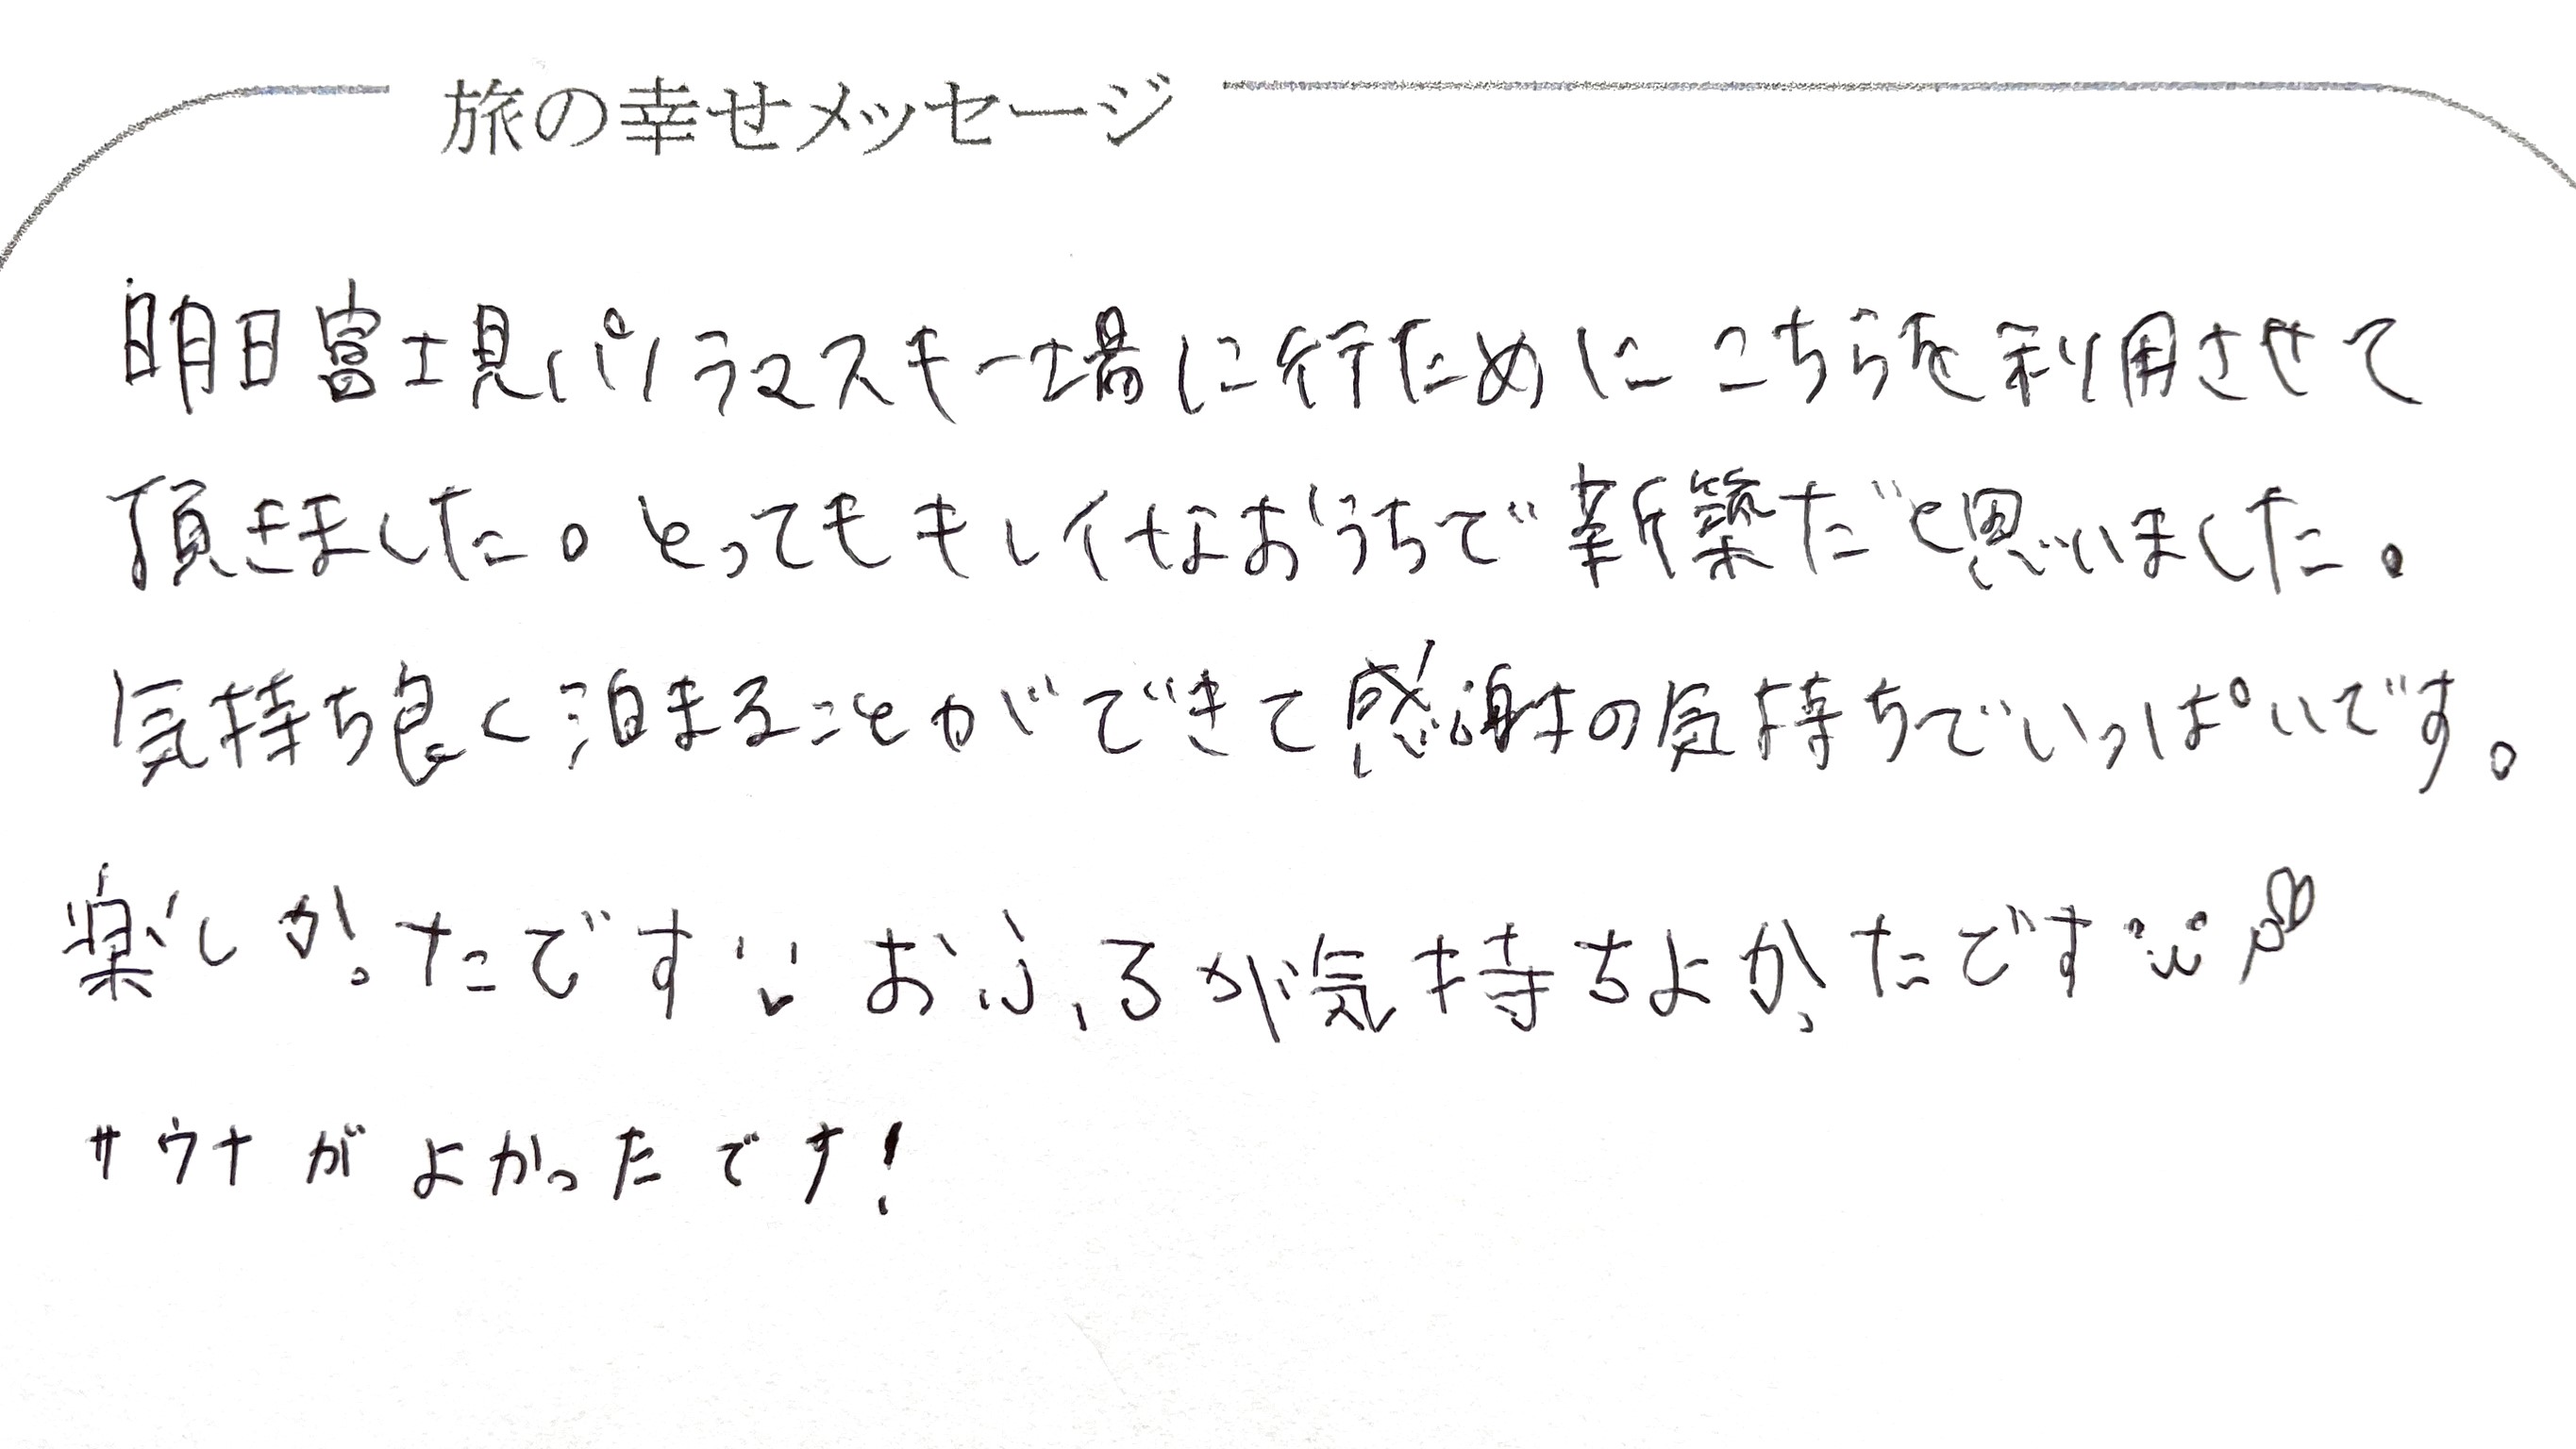 旅の幸せメッセージ
明日富士見パノラマスキー場に行ためにこちらを利用させて
頂きました。とってもキレイなおうちで新築だと思いました。
気持ち良く泊まることができて感謝の気持ちでいっぱいです。
楽しかったです おふろが気持ちよかったです
サウナがよかったです!